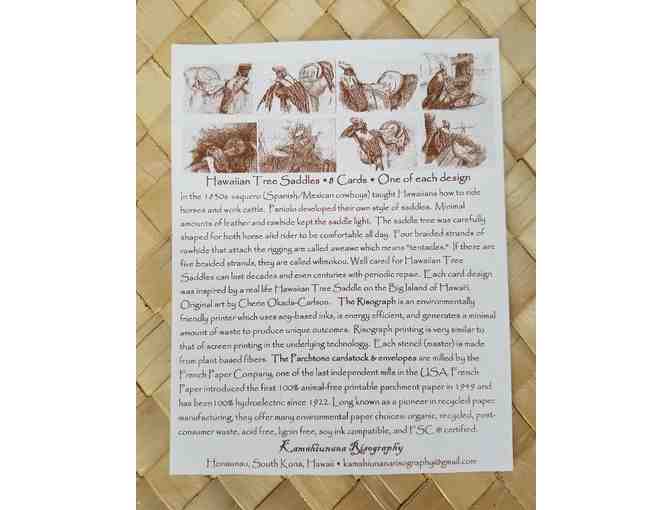 Hawaiian Tree Saddles • 8 Cards • One of each design
In the 1830s vaquero (Spanish/Mexican cowboys) taught Hawaiians how to ride
horses and work cattle. Paniolo developed their own style of saddles. Minimal
amounts of leather and rawhide kept the saddle light. The saddle tree was carefully
shaped for both horse and rider to be comfortable all day. Four braided strands of
rawhide that attach the rigging are called aweawe which means "tentacles." If there are
five braided strands, they are called wilinukou. Well cared for Hawaiian Tree
Saddles can last decades and even centuries with periodic repair. Each card design
was inspired by a real life Hawaiian Tree Saddle on the Big Island of Hawai'i.
Original art by Cherie Okada-Carlson. The Risograph is an environmentally
friendly printer which uses soy-based inks, is energy efficient, and generates a minimal
amount of waste to produce unique outcomes. Risograph printing is very similar to
that of screen printing in the underlying technology. Each stencil (master) is made
from plant based fibers. The Parchtone cardstock & envelopes are milled by the
French Paper Company, one of the last independent mills in the USA. French
Paper introduced the first 100% animal-free printable parchment paper in 1949 and
has been 100% hydroelectric since 1922. Long known as a pioneer in recycled paper
manufacturing, they offer many environmental paper choices: organic, recycled, post-
consumer waste, acid free, lignin free, soy ink compatible, and FSC ® certified.
Kamahiunana Risography
Honaunau, South Kona, Hawaii • kamahiunanarisography@gmail.com